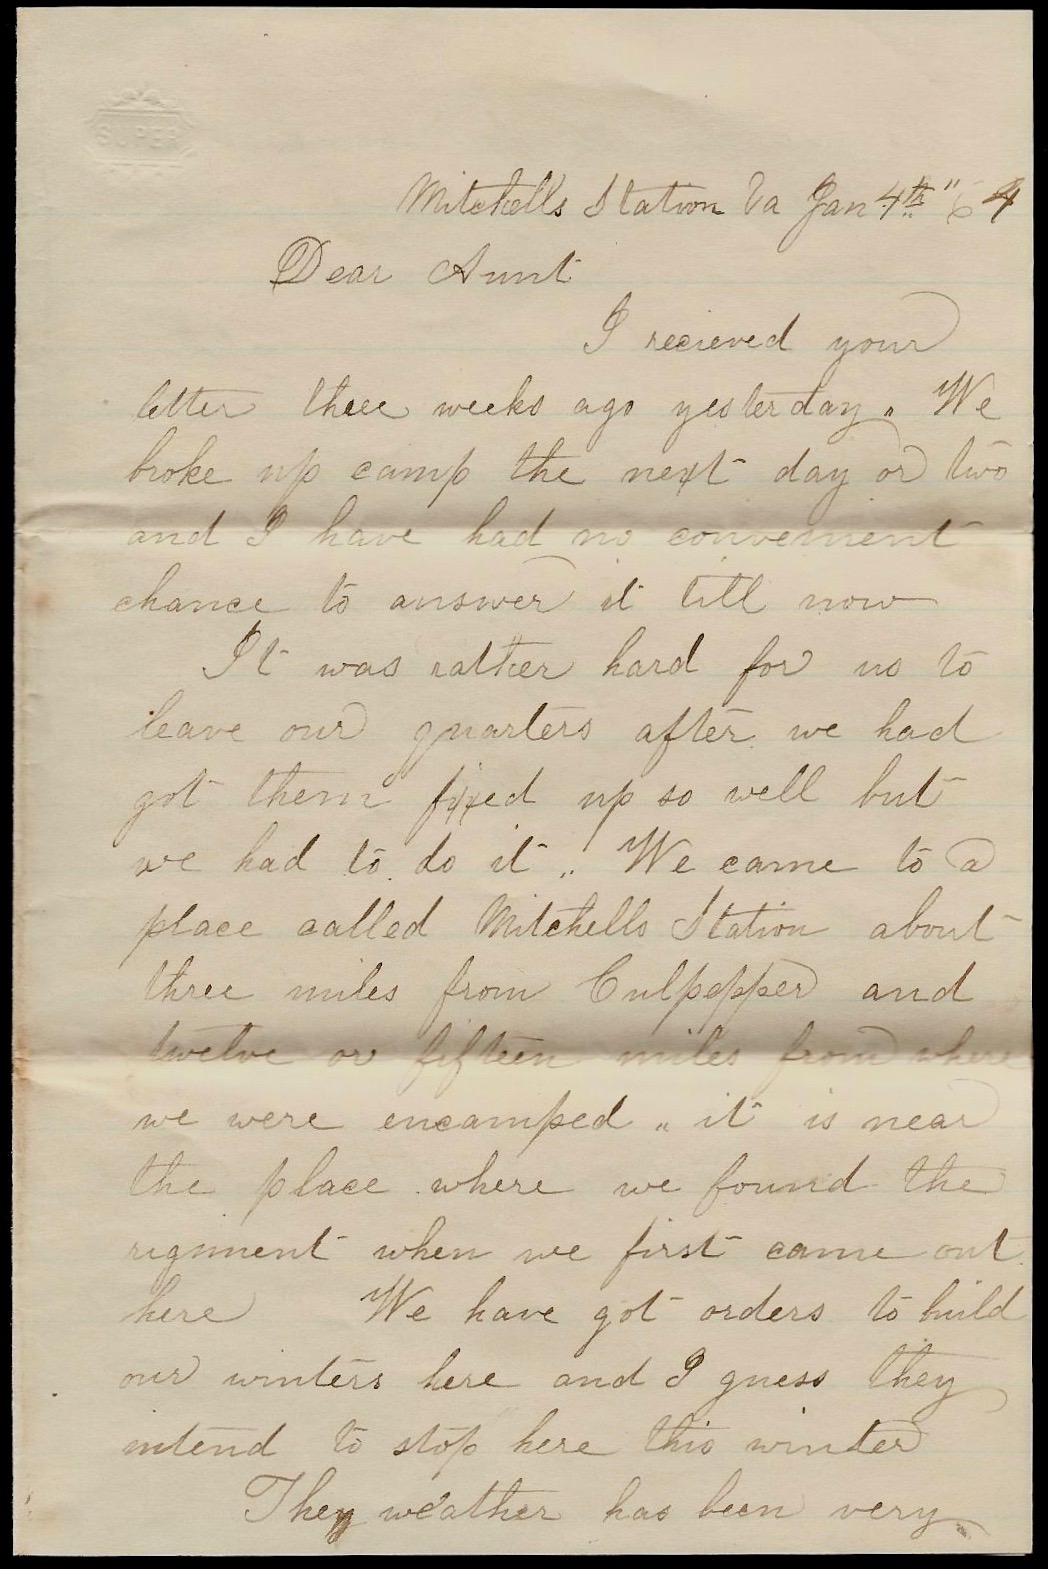 SUPER
Mitchells Station Va Jan 4th "64
Dear Aunt
I recieved your
letter three weeks ago yesterday. We
broke up camp the next day or two
and I have had no convenient
chance to answer it till now
It was rather hard for us to
leave our quarters after we had
got them fixed up so well but
we had to do it.. We came to a
place called Mitchells Station about
three miles from Culpepper and
twelve or fifteen miles from where
we were encamped .. it is near
the place where we found the
rigment when we first came out
here We have got orders to build
our winters here and I guess they
intend to stop here this winter
They weather has been very